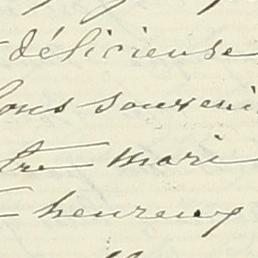 délicieuse
bons souvenir
tre mari
heureux